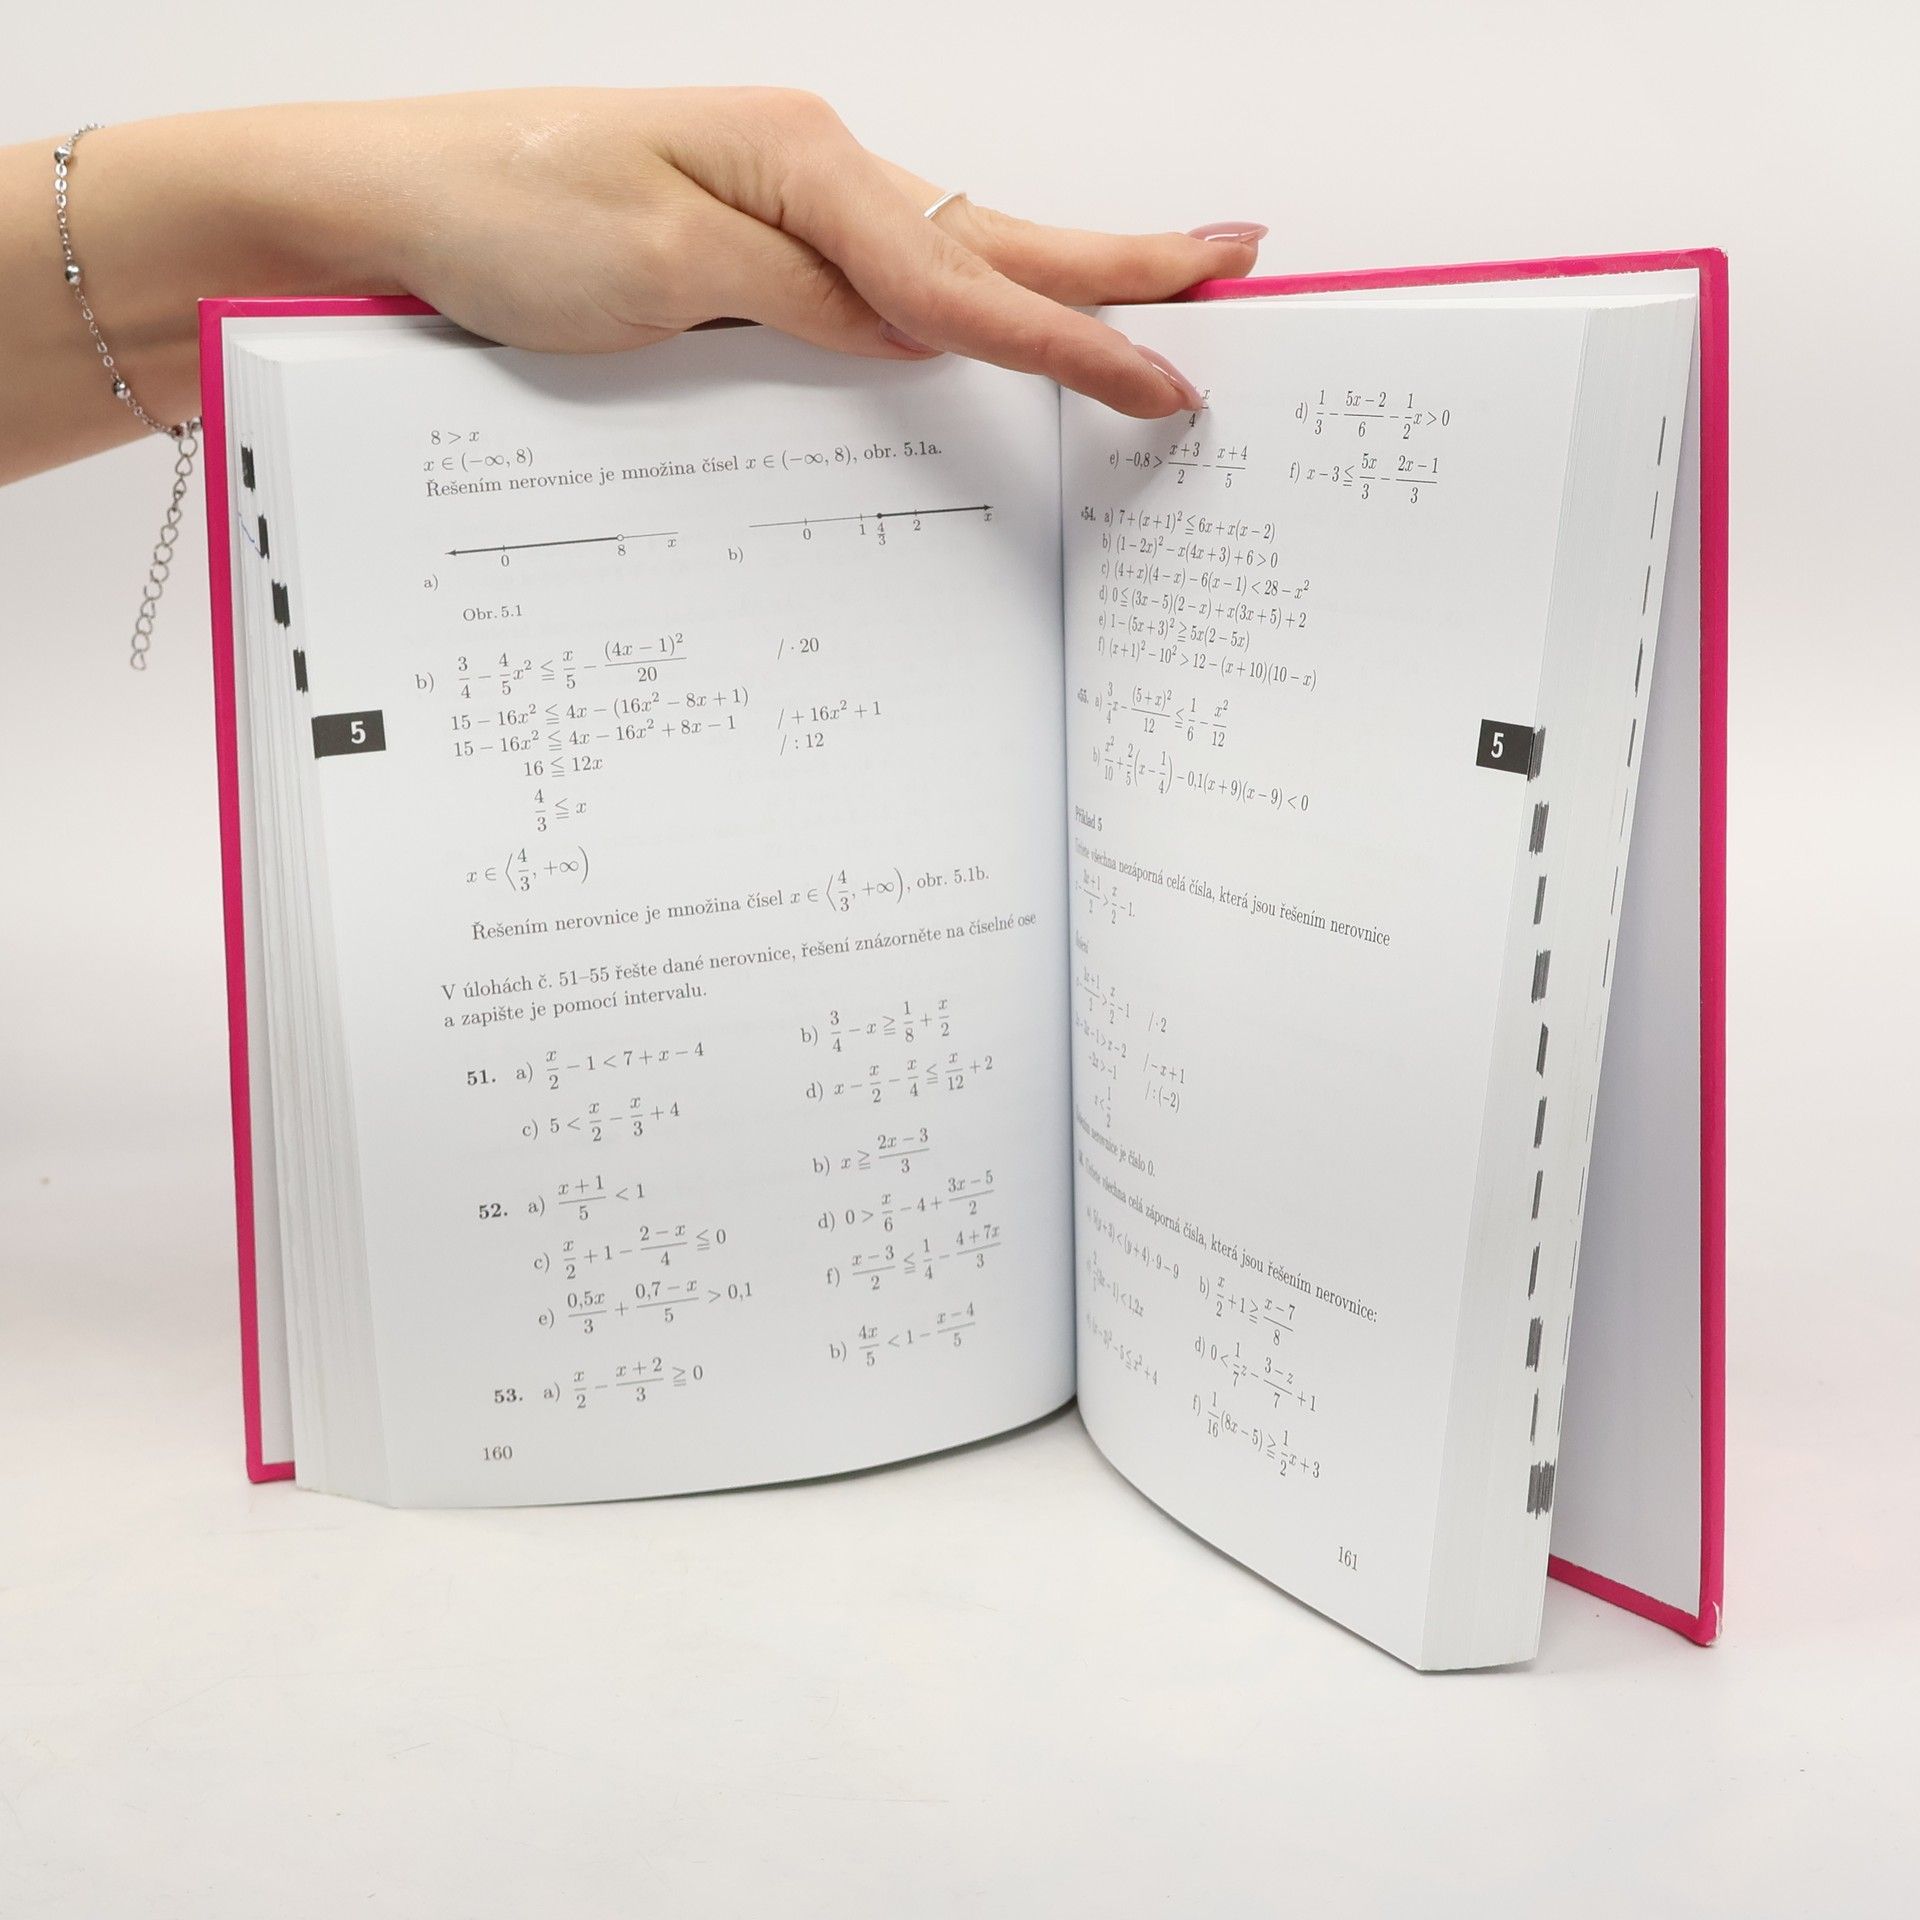 8 > x
x ∈ (−∞, 8)
Řešením nerovnice je množina čísel x ∈ (−∞, 8), obr. 5.1a.
a) 0 8 x
b) 0 1 4/3 2 x
Obr. 5.1
b) 3/4 − 4/5 x² ≦ x/5 − (4x − 1)²/20 / · 20
15 − 16x² ≦ 4x − (16x² − 8x + 1)
15 − 16x² ≦ 4x − 16x² + 8x − 1 / + 16x² + 1
16 ≦ 12x / : 12
4/3 ≦ x
x ∈ ⟨4/3, +∞)
Řešením nerovnice je množina čísel x ∈ ⟨4/3, +∞), obr. 5.1b.
V úlohách č. 51–55 řešte dané nerovnice, řešení znázorněte na číselné ose
a zapište je pomocí intervalu.
51. a) x/2 − 1 < 7 + x − 4 b) 3/4 − x ≧ 1/8 + x/2
c) 5 < x/2 − x/3 + 4 d) x − x/2 − x/4 ≦ x/12 + 2
52. a) (x + 1)/5 < 1 b) x ≧ (2x − 3)/3
c) x/2 + 1 − (2 − x)/4 ≦ 0 d) 0 > x/6 − 4 + (3x − 5)/2
e) 0,5x/3 + (0,7 − x)/5 > 0,1 f) (x − 3)/2 ≦ 1/4 − (4 + 7x)/3
53. a) x/2 − (x + 2)/3 ≧ 0 b) 4x/5 < 1 − (x − 4)/5
160
5
d) 1/3 − (5x − 2)/6 − 1/2 x > 0
e) −0,8 > (x + 3)/2 − (x + 4)/5 f) x − 3 ≦ 5x/3 − (2x − 1)/3
54. a) 7 + (x + 1)² ≦ 6x + x(x − 2)
b) (1 − 2x)² − x(4x + 3) + 6 > 0
c) (4 + x)(4 − x) − 6(x − 1) < 28 − x²
d) 0 ≦ (3x − 5)(2 − x) + x(3x + 5) + 2
e) 1 − (5x + 3)² ≧ 5x(2 − 5x)
f) (x + 1)² − 10² > 12 − (x + 10)(10 − x)
55. a) 3/4 x − (5 + x)²/12 ≦ 1/6 − x²/12
b) x²/10 + 2/5 (x − 1/4) − 0,1(x + 9)(x − 9) < 0
Příklad 5
všechna nezáporná celá čísla, která jsou řešením nerovnice
> x/2 − 1.
> x/2 − 1 / · 2
> x − 2 / − x + 1
−2x > −1 / : (−2)
x < 1/2
nerovnice je číslo 0.
všechna celá záporná čísla, která jsou řešením nerovnice:
< (y + 4) · 9 − 9 b) x/2 + 1 ≧ (x − 7)/8
< 1,2x d) 0 < 1/7 z − (3 − z)/7 + 1
≦ x² + 4 f) 1/16 (8x − 5) ≧ 1/2 x + 3
5
161